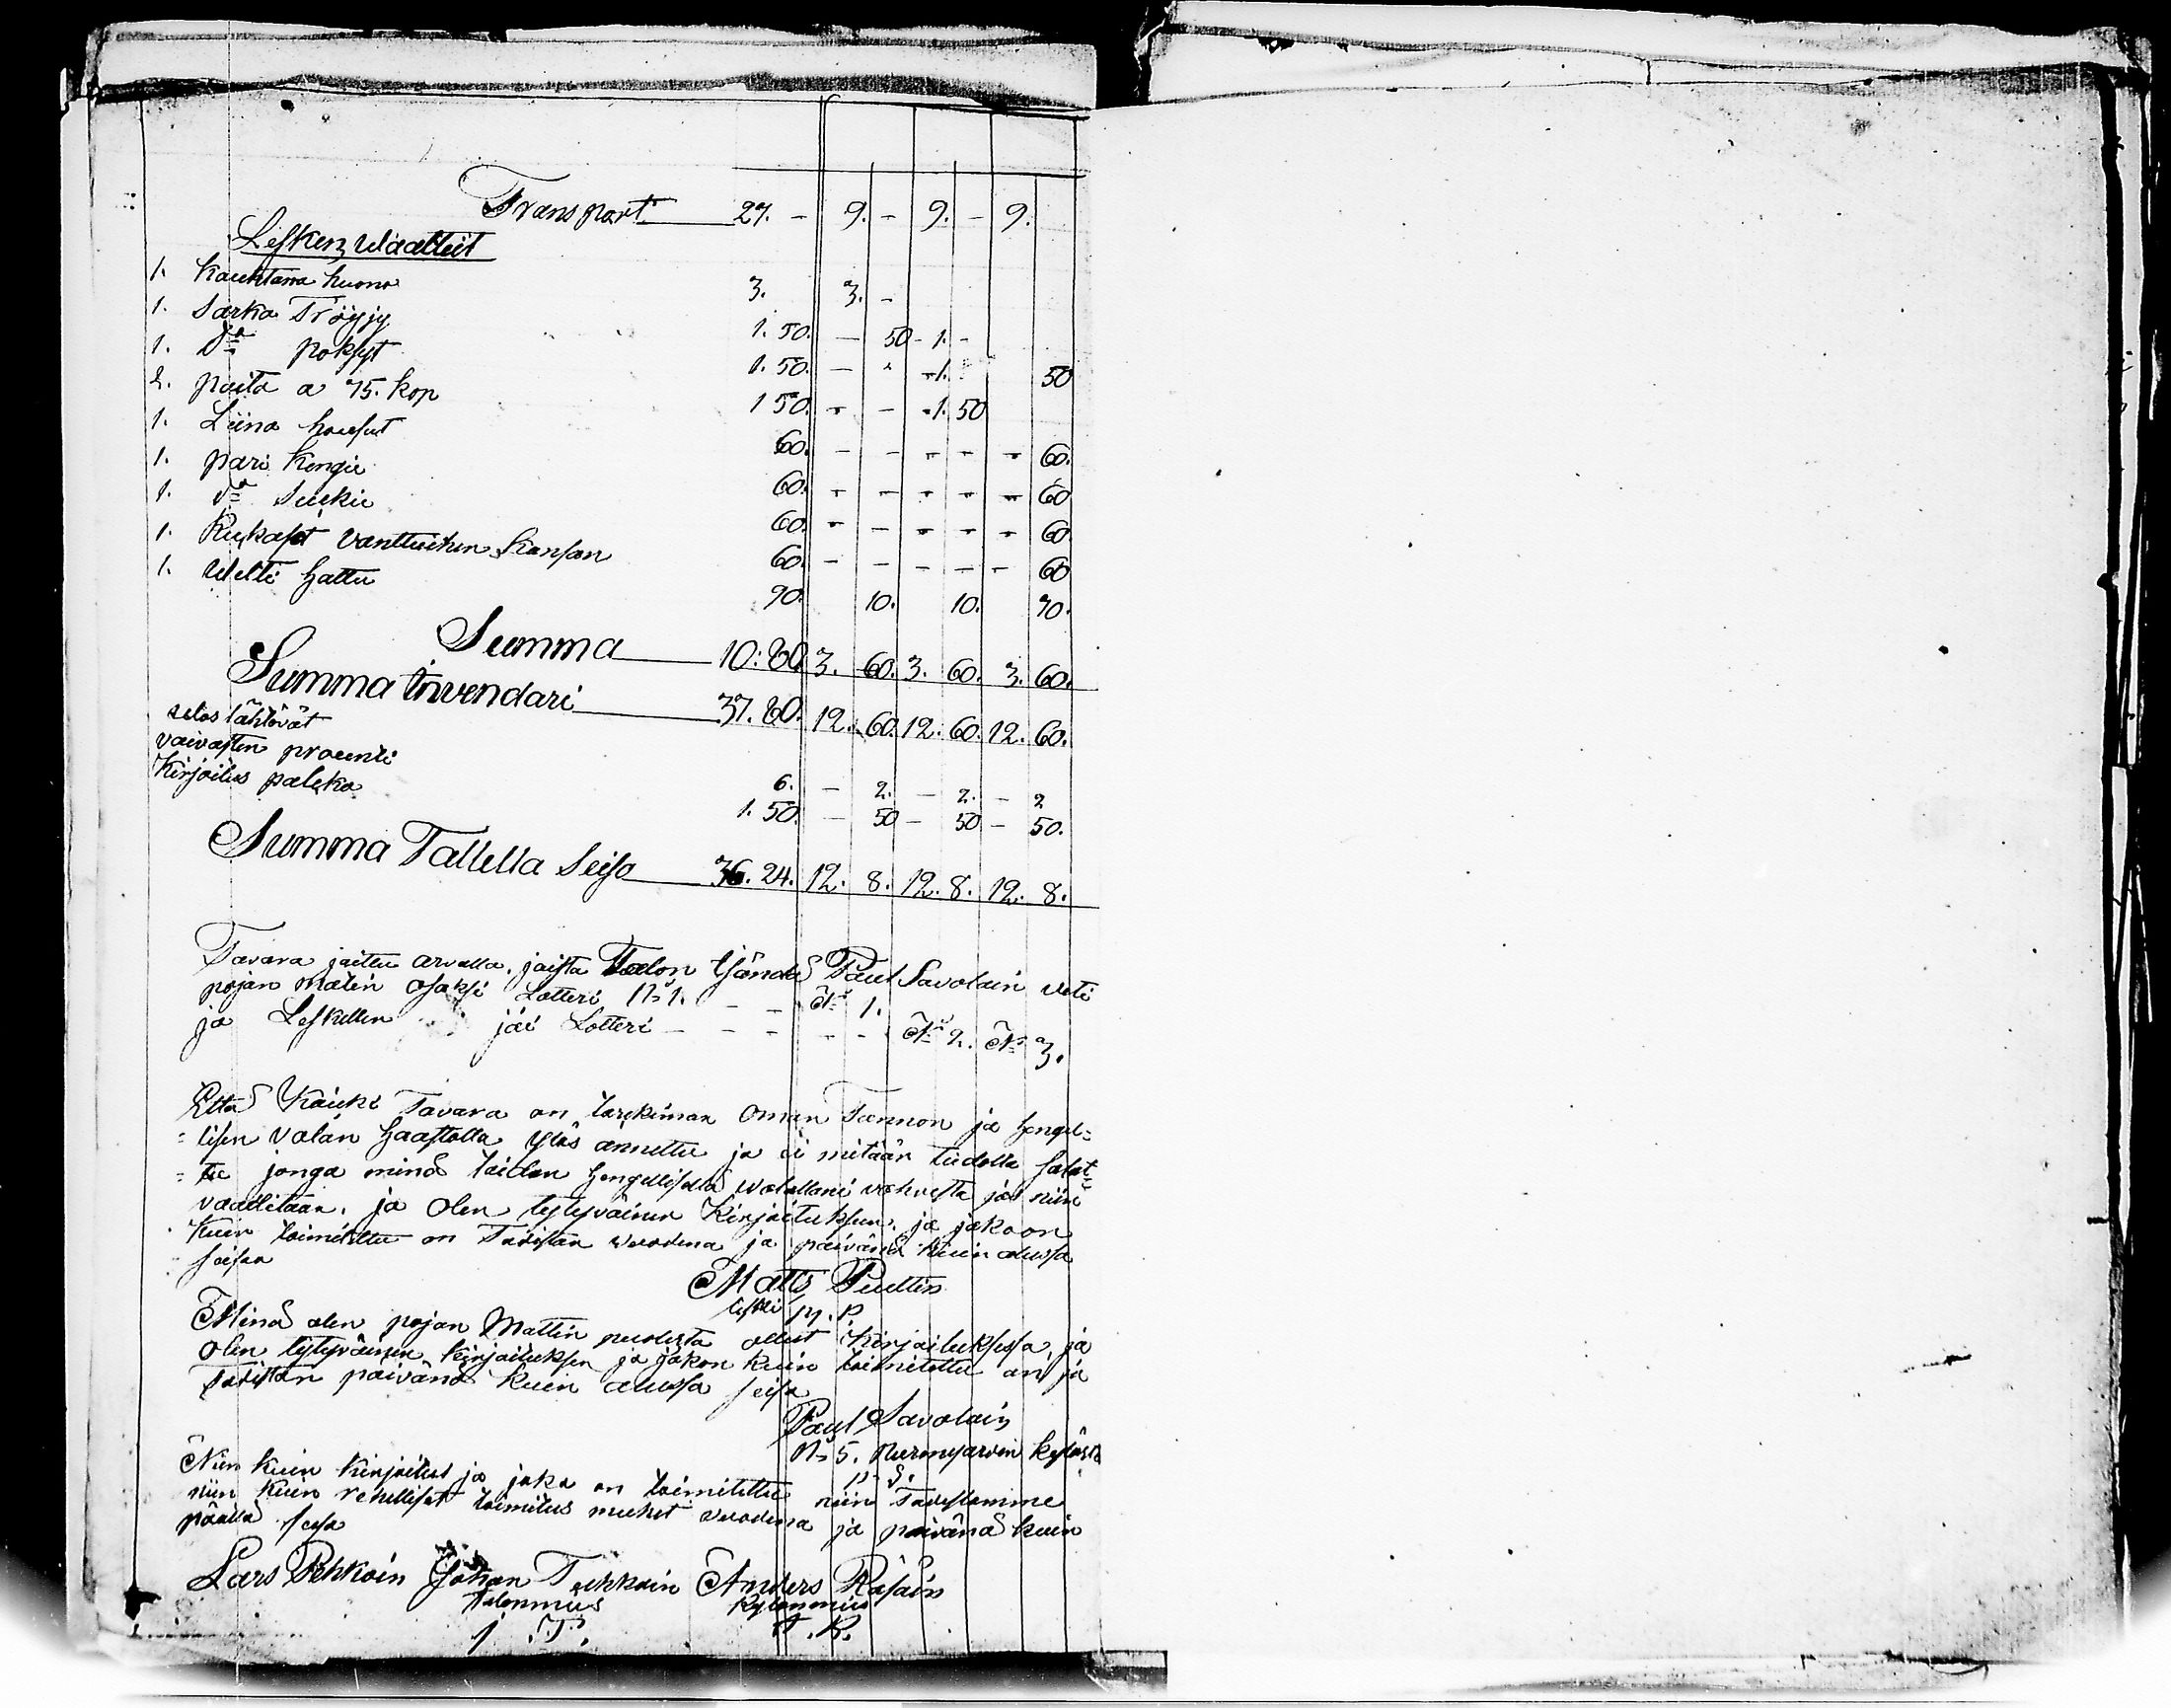 Transport 27. - 9. - 9. - 9.
Lesken Waatteit
1. Kauhtana huono 3. 3. -
1. Sarka Tröyjy 1. 50. - 50 - 1. -
1. Do poksyt 1. 50. - - 1. 50
2. paita a 75. kop 1 50. - - 1. 50
1. Liina housut 60. - - - - - 60.
1. pari Kengie 60. - - - - - 60
1. Do Sukie 60. - - - - - 60.
1. Rukaset vanttuihen Kansan 60. - - - - - 60
1. Weltti hattu 90. 10. 10. 70.
Summa 10: 80 3. 60. 3. 60. 3. 60.
Summa Invendari 37. 80. 12. 60. 12. 60. 12. 60.
ulos lähtövät
vaivasten procenti 6. - 2. - 2. - 2
Kirjoitus palkka 1. 50. - 50 - 50 - 50.
Summa Tallella Seiso 36. 24. 12. 8. 12. 8. 12. 8.
Tavara jaittu arvalla, joista Talon Isändä Paul Savolain veti
pojan Matin osaksi Lotteri No 1. - - No 1.
ja Leskellen jäi Lotteri - - - - - No 2. No 3.
Että Kaicki Tavara on tarckiman oman Tunnon ja hengel=
=lisen valan haastolla ylös annettu ja ei mitään tiedolla salat=
=tu jonga minä taidan hengellisellä valallani vahvista jos niin
vaaditaan. ja olen tytyväinen Kirjoituksen, ja jakoon
Kuin toimitettu on Todistan vuodena ja päivänä kuin alussa
seisoo
Matts Puttin
leski M. P.
Minä olen pojan Mattin puolesta ollut Kirjoituksessa, ja
olen tytyväinen kirjoituksen ja jakon kuin toimitettu on ja
Todistan päivänä kuin alussa seiso
Paul Savolain
No 5. Nurmijarvin kylästä
P. S.
Nin kuin Kirjoitus ja jako on toimitettu niin Todistamme
niin kuin rehelliset toimitus miehet vuodena ja päivänä kuin
päällä seiso
Lars Pehkoin Johan Tuhkain Anders Räsäin
Talonmies Kylänmies
J. T. A. R.